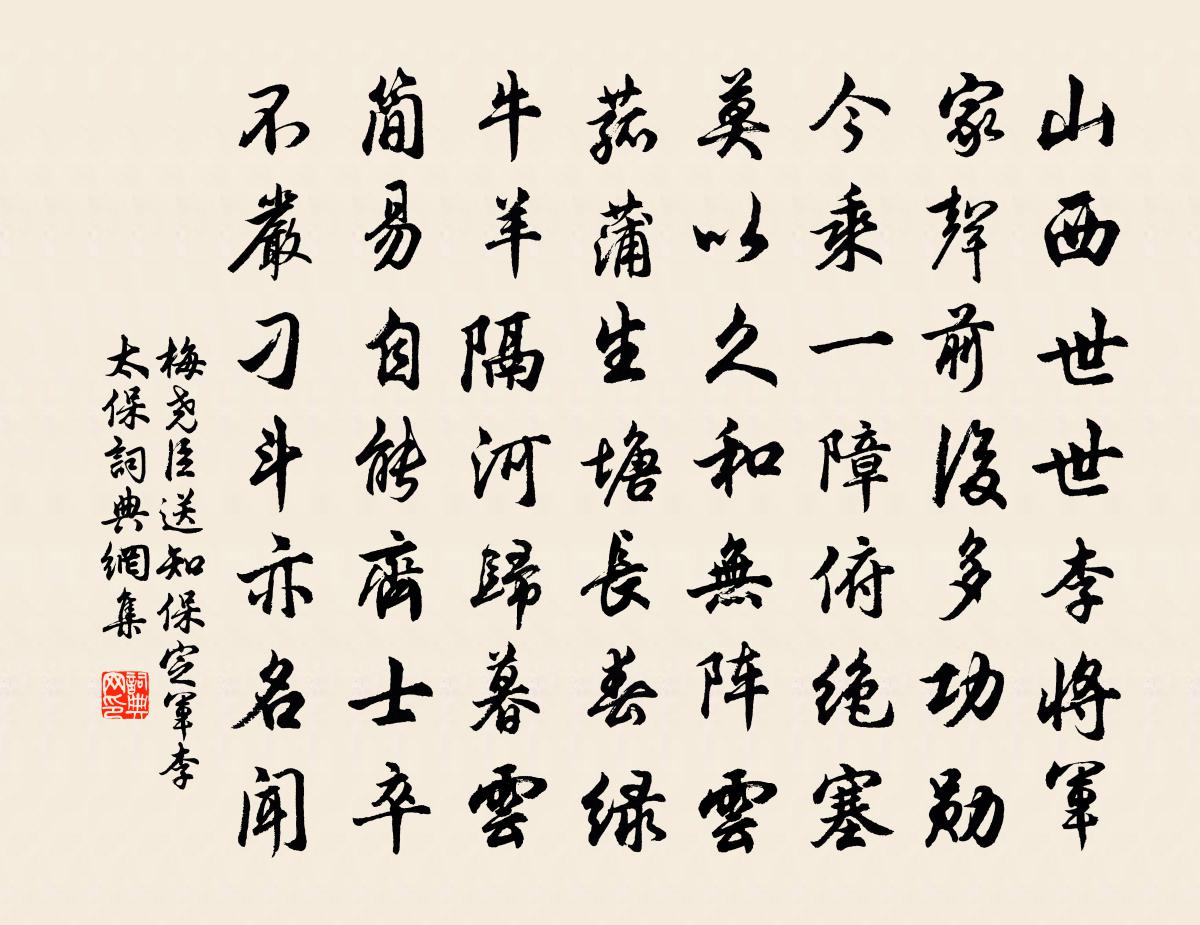 山西世世李將軍
家聲前後多功勛
今乘一障俯绝塞
莫以久和無阵雲
菰蒲生塘長春緑
牛羊隔河歸暮雲
简易自能齊士卒
不嚴刁斗亦名聞
梅尧臣送知保定軍李
太保詞典網集
詞典
网印